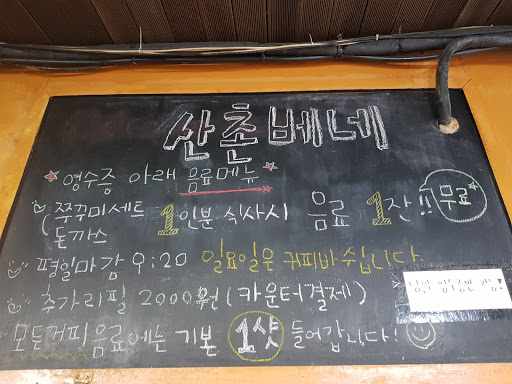 산촌베네
영수증 아래 음료메뉴
(쭈꾸미세트 1인분 식사시 음료 1잔!! 무료
돈까스
평일마감 9:20 일요일은 커피바 쉽니다.
추가리필 2000원 (카운터결제)
모든커피음료에는 기본 1샷 들어갑니다!